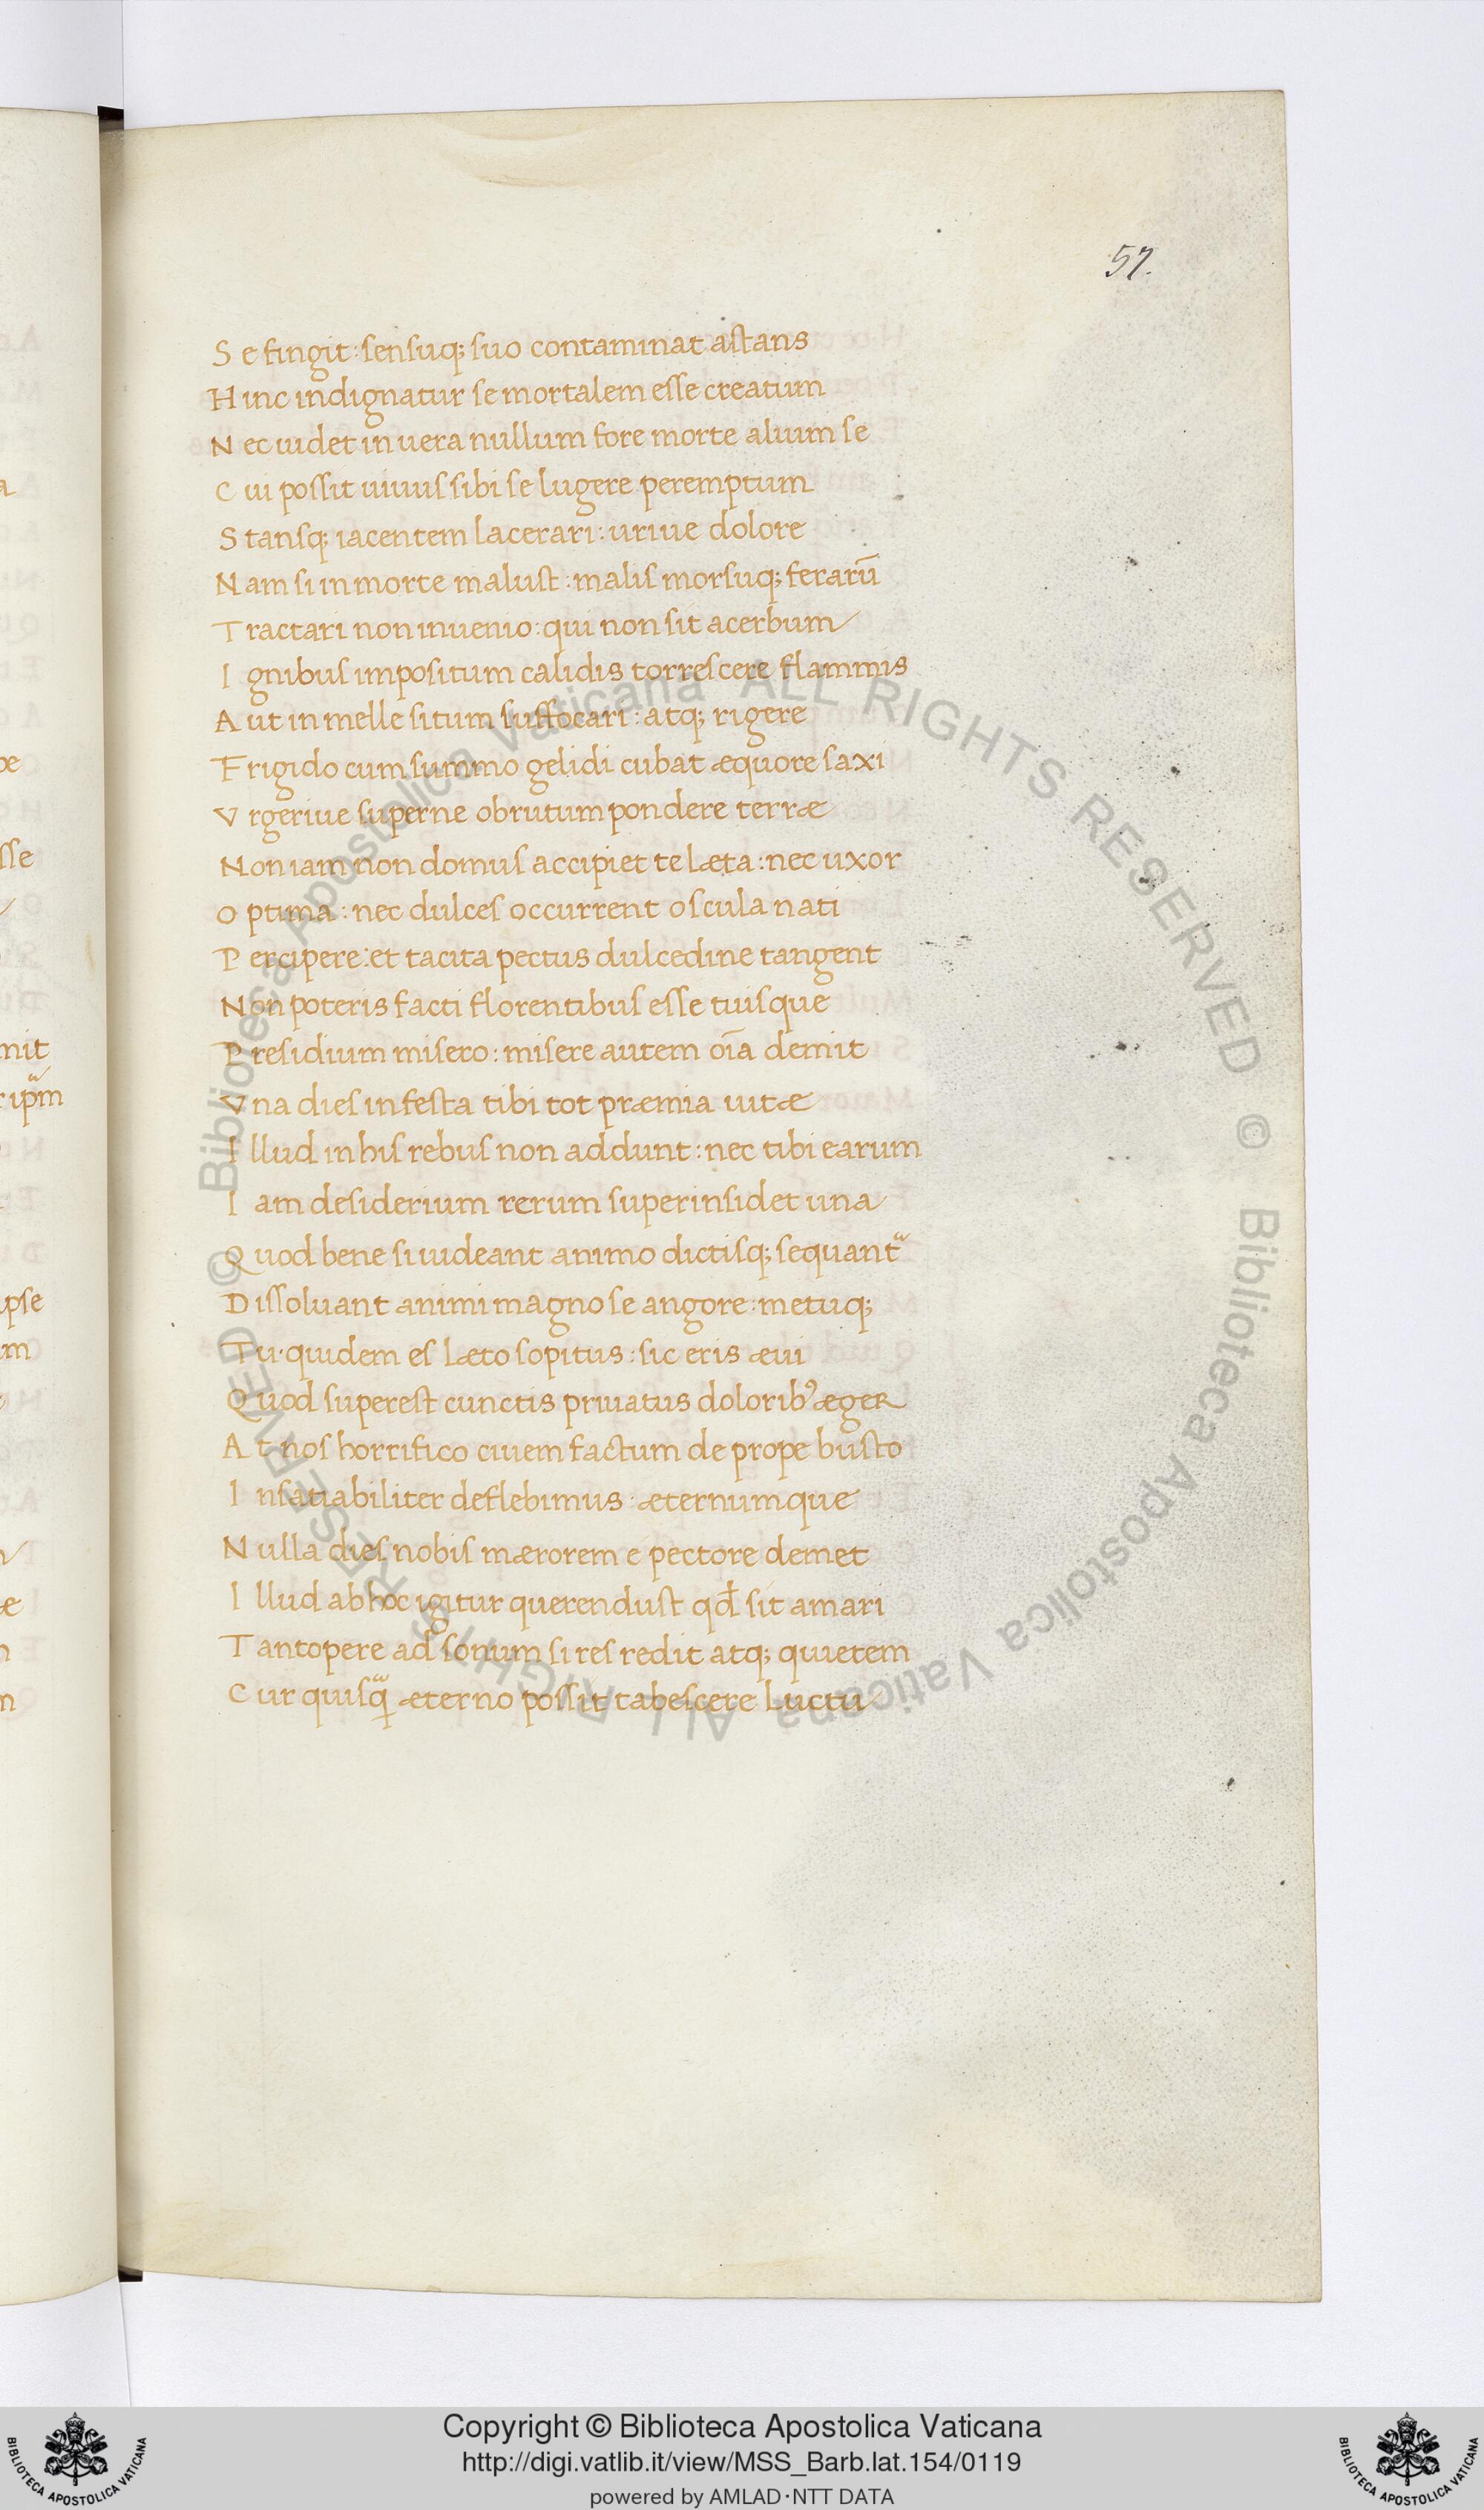 57.
Se fingit: sensuq; suo contaminat astans
Hinc indignatur se mortalem esse creatum
Nec uidet in uera nullum fore morte alium se
Cui possit uiuus sibi se lugere peremptum
Stansq; iacentem lacerari: uriue dolore
Nam si in morte malust: malis morsuq; ferarū
Tractari non inuenio: qui non sit acerbum
Ignibus impositum calidis torrescere flammis
Aut in melle situm suffocari: atq; rigere
Frigido cum summo gelidi cubat æquore saxi
Vrgeriue superne obrutum pondere terræ
Non iam non domus accipiet te læta: nec uxor
Optima: nec dulces occurrent oscula nati
Percipere: et tacita pectus dulcedine tangent
Non poteris facti florentibus esse tuisque
Presidium misero: misere autem oīa demit
Vna dies infesta tibi tot præmia uitæ
Illud in his rebus non addunt: nec tibi earum
Iam desiderium rerum super insidet una
Quod bene si uideant animo dictisq; sequantᷓ
Dissoluant animi magno se angore: metuq;
Tu quidem es læto sopitus: sic eris æui
Quod superest cunctis priuatus dolorib⁹ æger
At nos horrifico ciuem factum de prope busto
Insatiabiliter deflebimus: æternumque
Nulla dies nobis mærorem e pectore demet
Illud ab hoc igitur querendust qđ sit amari
Tantopere ad sonum si res redit atq; quietem
Cur quisqᷓ æterno possit tabescere luctu
Biblioteca Apostolica Vaticana ALL RIGHTS RESERVED © Biblioteca Apostolica Vaticana ALL RIGHTS RESERVED ©
Copyright © Biblioteca Apostolica Vaticana
http://digi.vatlib.it/view/MSS_Barb.lat.154/0119
powered by AMLAD·NTT DATA
BIBLIOTECA APOSTOLICA VATICANA
BIBLIOTECA APOSTOLICA VATICANA